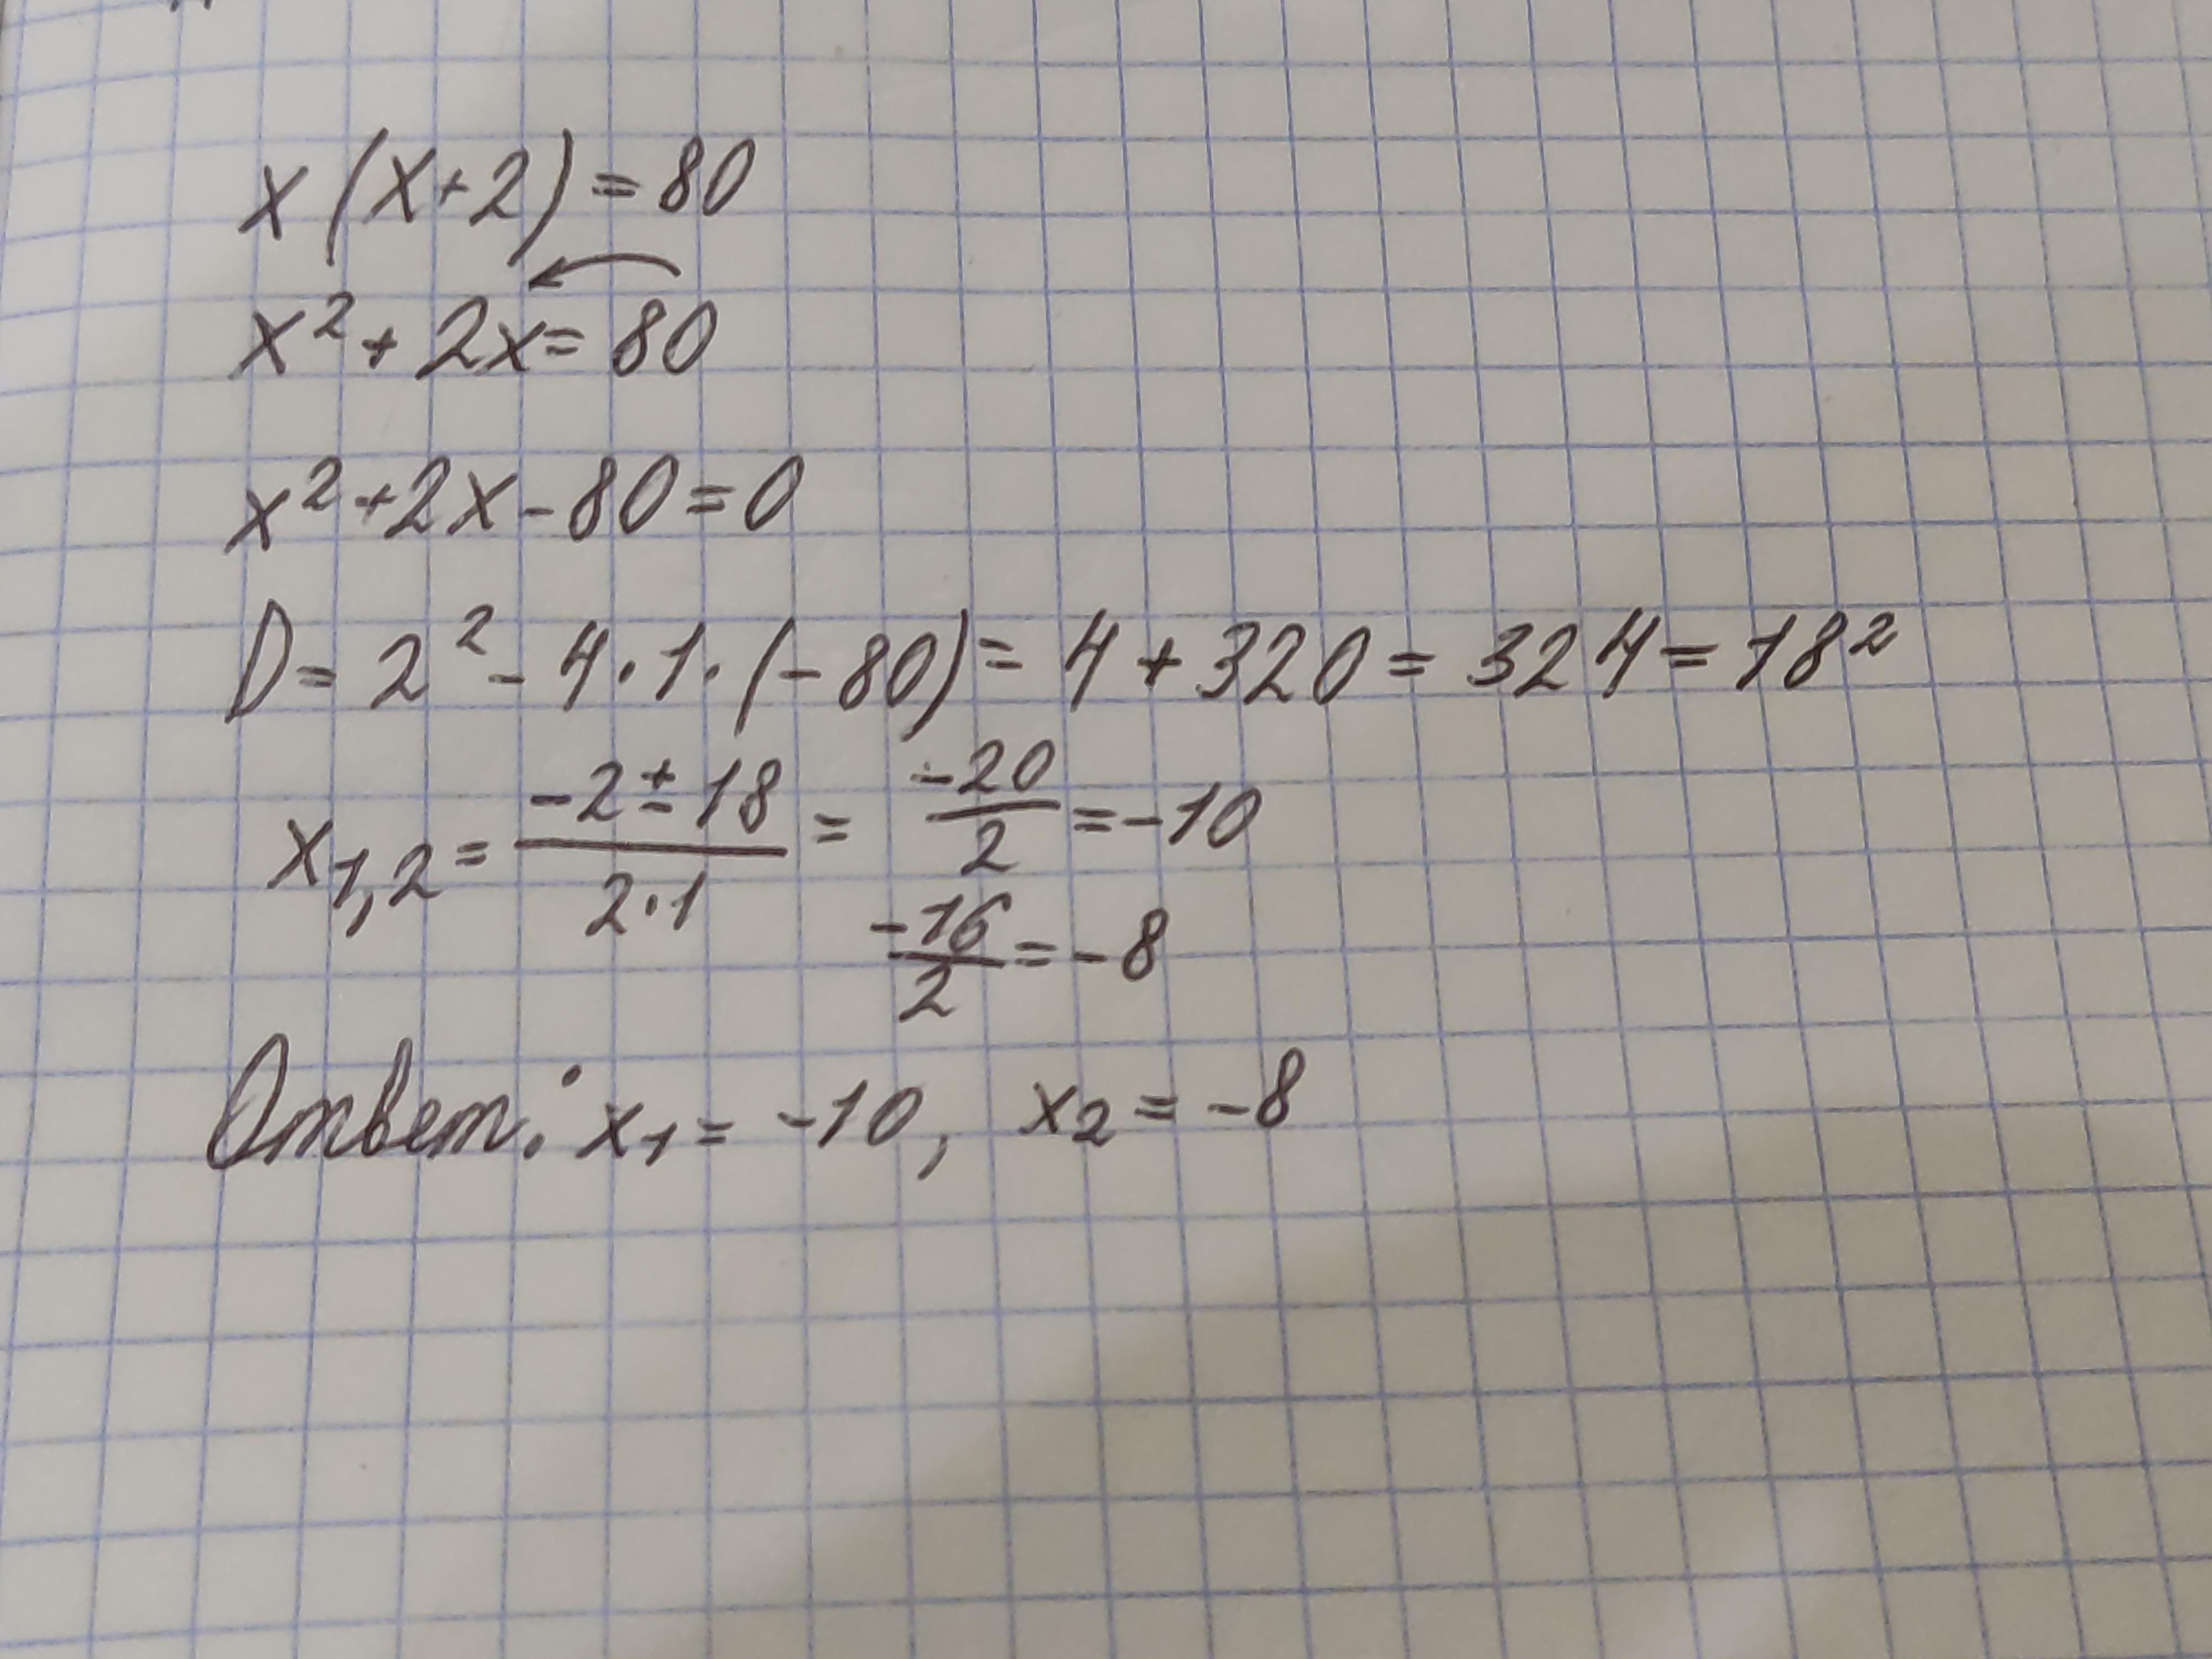 x(x+2)=80
x²+2x=80
x²+2x-80=0
D=2²-4·1·(-80)=4+320=324=18²
x₁,₂=(-2±18)/(2·1)=-20/2=-10
-16/2=-8
Ответ: x₁=-10, x₂=-8